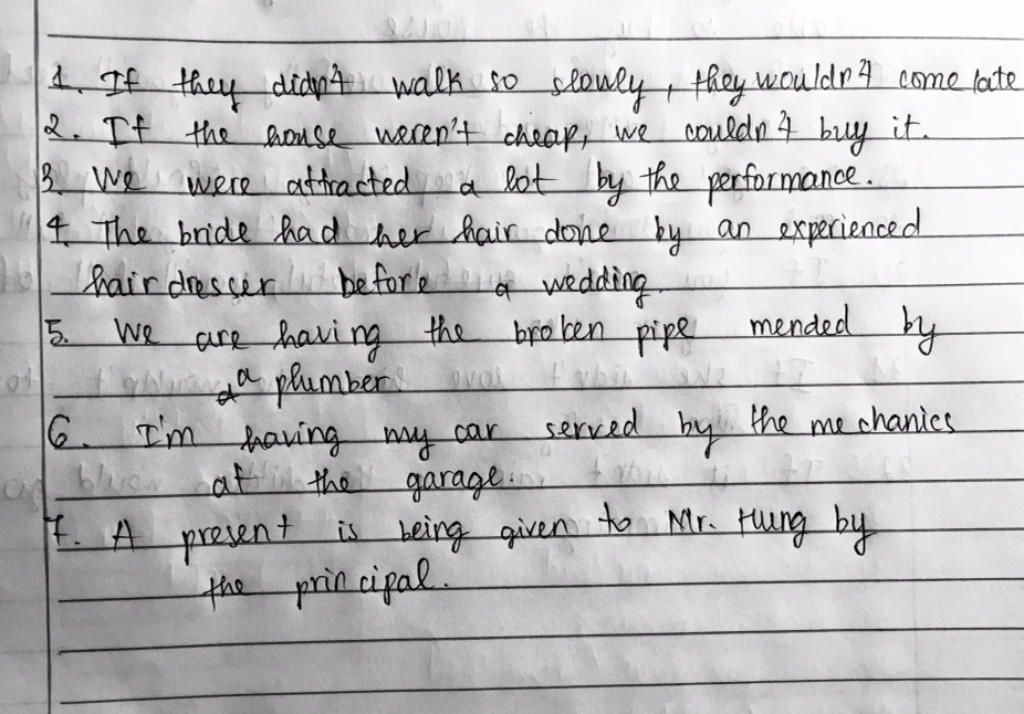 1. If they didn't walk so slowly, they wouldn't come late
2. If the house weren't cheap, we couldn't buy it.
3. We were attracted a lot by the performance.
4. The bride had her hair done by an experienced
hairdresser before a wedding.
5. We are having the broken pipe mended by
a plumber.
6. I'm having my car served by the mechanics
at the garage.
7. A present is being given to Mr. Hung by
the principal.